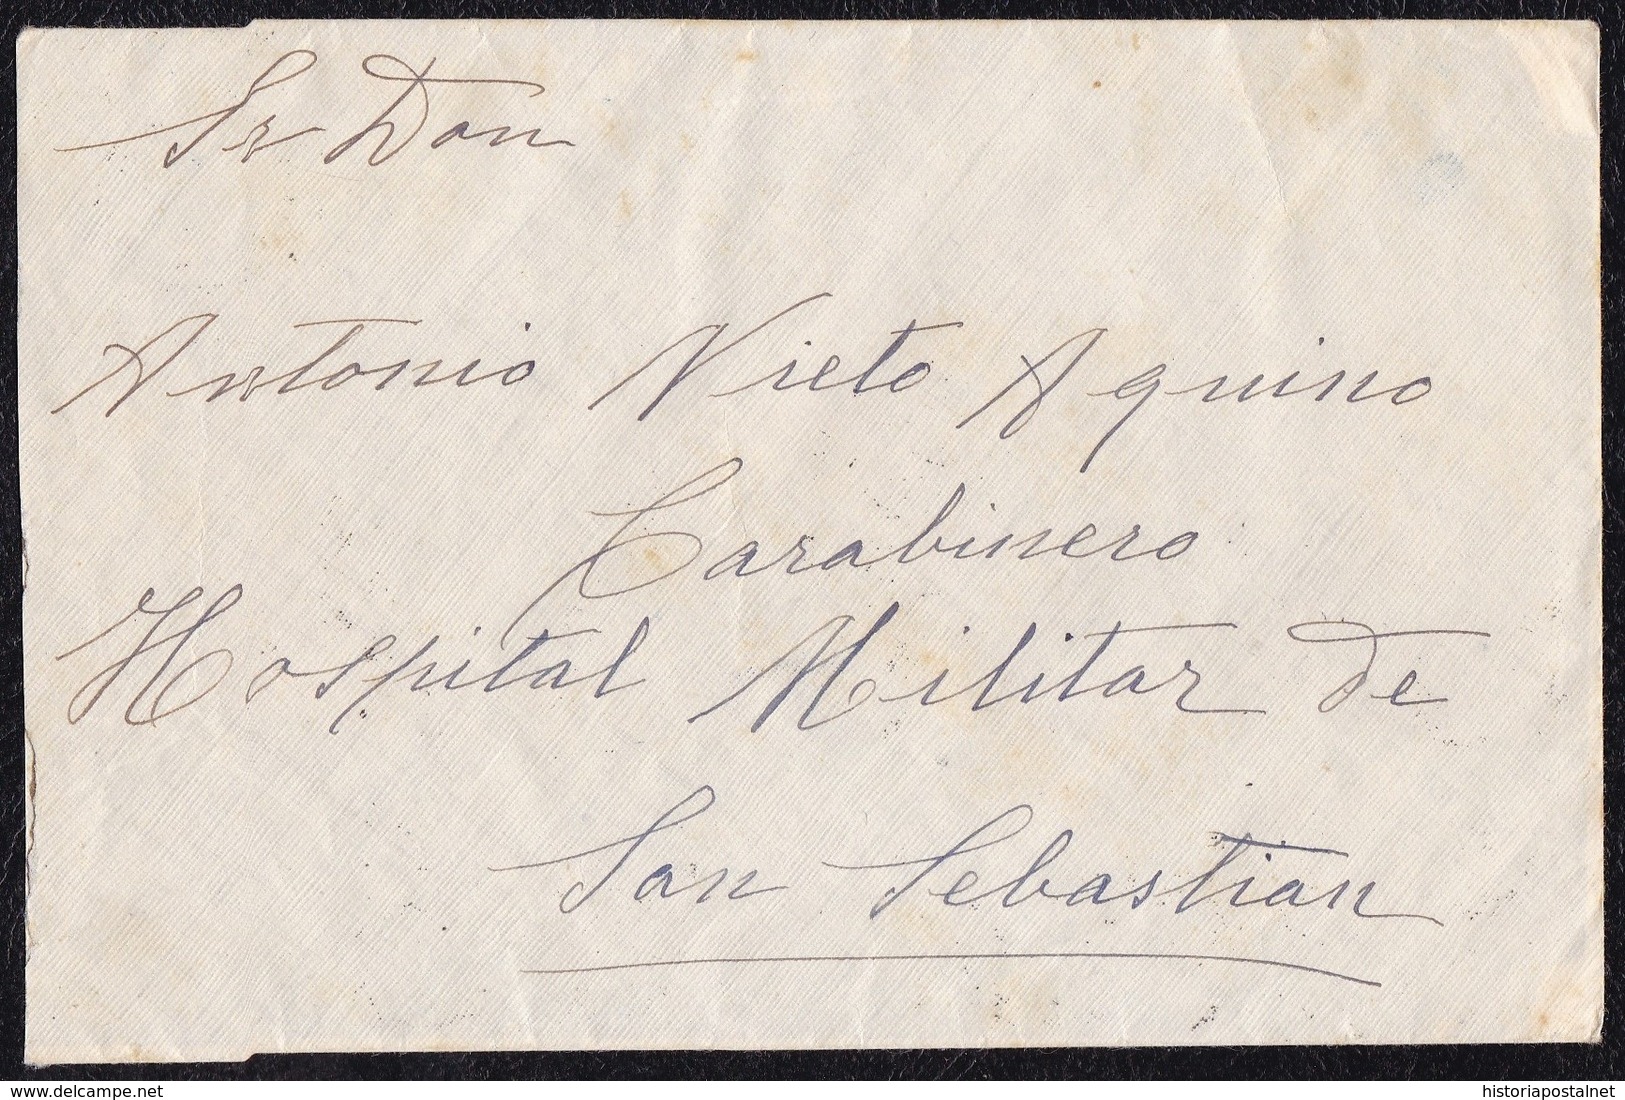 Sr Don
Antonio Nieto Aquino
Carabinero
Hospital Militar de
San Sebastian
historiapostalnet